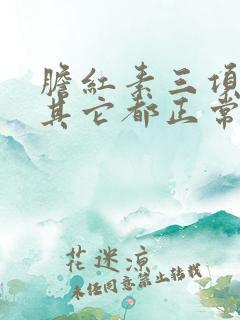 膽紅素三項
其它都正常
花迷凉
未经同意禁止转载